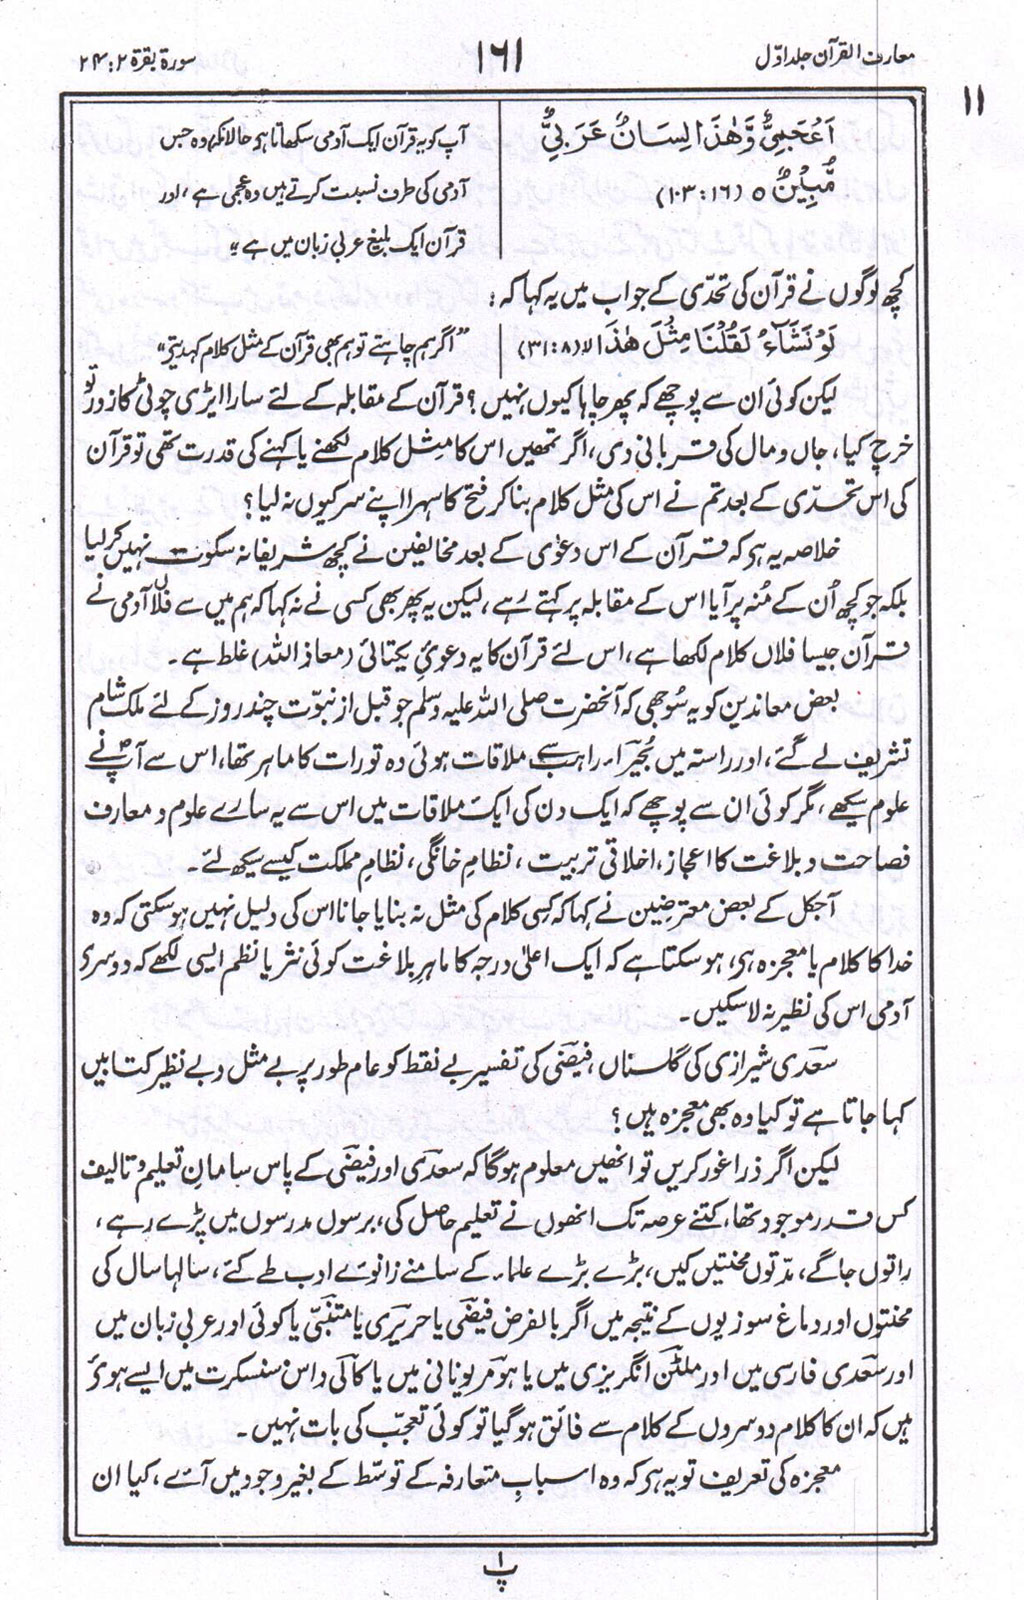 معارف القرآن جلد اوّل
۱۶۱
سورۃ بقرۃ ۲ : ۲۴
۱۱
اَعْجَمِیٌّ وَّھٰذَا لِسَانٌ عَرَبِیٌّ
مُّبِیْنٌ ٥ (۱۶ : ۱۰۳)
آپ کو یہ قرآن ایک آدمی سکھاتا ہر حالانکہ وہ جس
آدمی کی طرف نسبت کرتے ہیں وہ عجمی ہے ، اور
قرآن ایک بلیغ عربی زبان میں ہے "
کچھ لوگوں نے قرآن کی تحدّی کے جواب میں یہ کہا کہ :
لَوْ نَشَآءُ لَقُلْنَا مِثْلَ ھٰذَا لا (۸ : ۳۱)
"اگر ہم چاہتے تو ہم بھی قرآن کے مثل کلام کہدیتے"
لیکن کوئی ان سے پوچھے کہ پھر چاہا کیوں نہیں ؟ قرآن کے مقابلہ کے لئے سارا ایڑی چوٹی کا زور تو
خرچ کیا ، جان و مال کی قربانی دی ، اگر تمھیں اس کا مثل کلام لکھنے یا کہنے کی قدرت تھی تو قرآن
کی اس تحدّی کے بعد تم نے اس کی مثل کلام بنا کر فتح کا سہرا اپنے سر کیوں نہ لیا ؟
خلاصہ یہ ہر کہ قرآن کے اس دعوٰی کے بعد مخالفین نے کچھ شریفانہ سکوت نہیں کر لیا
بلکہ جو کچھ اُن کے مُنہ پر آیا اس کے مقابلہ پر کہتے رہے ، لیکن یہ پھر بھی کسی نے نہ کہا کہ ہم میں سے فلاں آدمی نے
قرآن جیسا فلاں کلام لکھا ہے ، اس لئے قرآن کا یہ دعوئ یکتائی (معاذ اللہ) غلط ہے ۔
بعض معاندین کو یہ سُوجھی کہ آنحضرت صلی اللہ علیہ وسلم جو قبل از نبوّت چند روز کے لئے ملک شام
تشریف لے گئے ، اور راستہ میں بُحیرَاء راہب سے ملاقات ہوئی وہ تورات کا ماہر تھا ، اس سے آپؐ نے
علوم سیکھے ، مگر کوئی ان سے پوچھے کہ ایک دن کی ایک ملاقات میں اس سے یہ سارے علوم و معارف
فصاحت و بلاغت کا اعجاز ، اخلاقی تربیت ، نظامِ خانگی ، نظامِ مملکت کیسے سیکھ لئے ۔
آجکل کے بعض معترضین نے کہا کہ کسِی کلام کی مثل نہ بنایا جانا اس کی دلیل نہیں ہو سکتی کہ وہ
خدا کا کلام یا معجزہ ہی ، ہو سکتا ہے کہ ایک اعلیٰ درجہ کا ماہرِ بلاغت کوئی نثر یا نظم ایسی لکھے کہ دوسری
آدمی اس کی نظیر نہ لا سکیں ۔
سعدی شیرازی کی گلستاں ، فیضی کی تفسیر بے نقط کو عام طور پر بے مثل و بے نظیر کتابیں
کہا جاتا ہے تو کیا وہ بھی معجزہ ہیں ؟
لیکن اگر ذرا غور کریں تو انھیں معلوم ہوگا کہ سعدی اور فیضی کے پاس سامانِ تعلیم و تالیف
کس قدر موجود تھا ، کتنے عرصہ تک انھوں نے تعلیم حاصل کی ، برسوں مدرسوں میں پڑے رہے ،
راتوں جاگے ، مدّتوں محنتیں کیں ، بڑے بڑے علماء کے سامنے زانوئے ادب طے کئے ، سالہا سال کی
محنتوں اور دماغ سوزیوں کے نتیجہ میں اگر بالفرض فیضی یا حریری یا متنبّی یا کوئی اور عربی زبان میں
اور سعدی فارسی میں اور ملٹن انگریزی میں یا ہومر یونانی میں یا کالی داس سنسکرت میں ایسے ہوئے
ہیں کہ ان کا کلام دوسروں کے کلام سے فائق ہو گیا تو کوئی تعجّب کی بات نہیں ۔
معجزہ کی تعریف تو یہ ہر کہ وہ اسبابِ متعارفہ کے توسّط کے بغیر وجود میں آئے ، کیا ان
پ۱